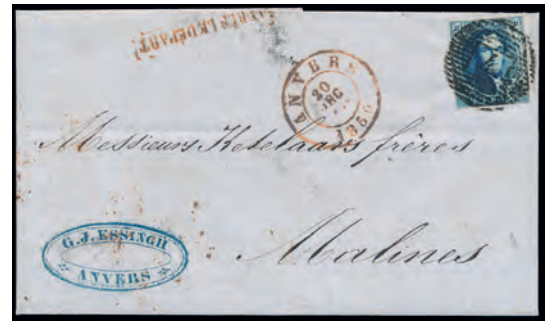 APRÈS LE DÉPART
ANVERS
20
DEC
185
Messieurs Ketelaars frères
Malines
G. J. ESSINGH
ANVERS